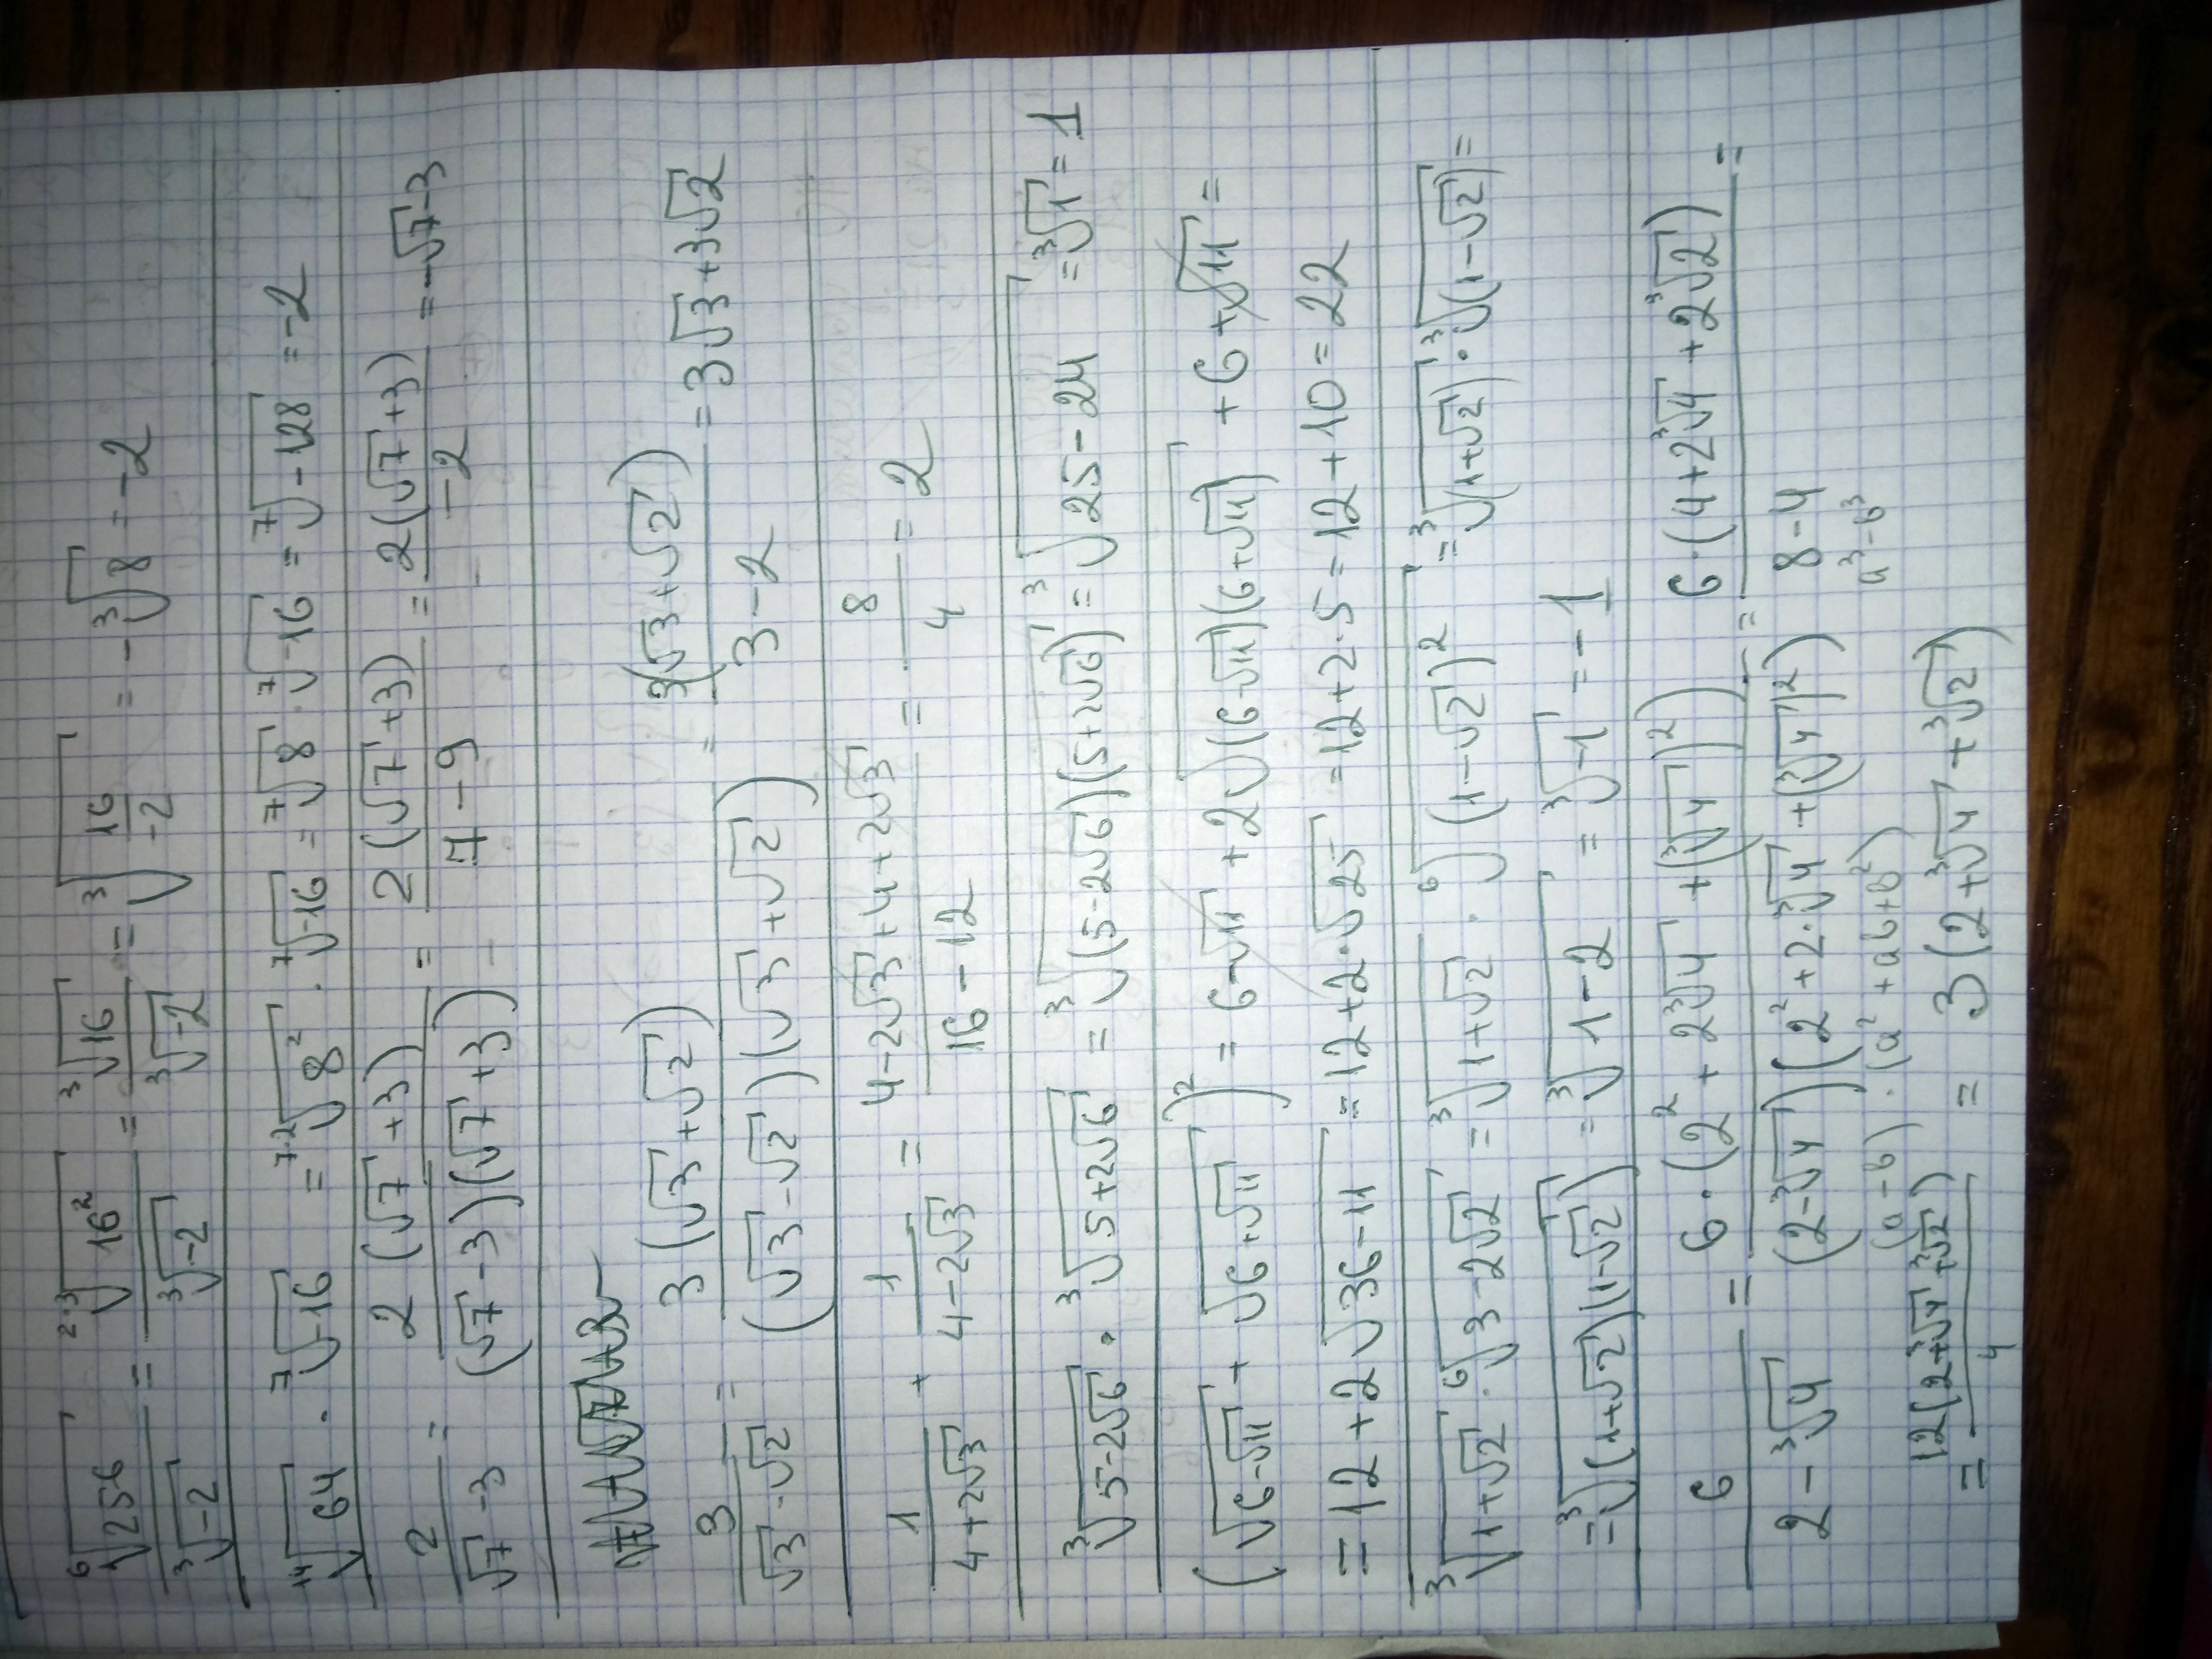 ⁶√256 / ³√-2 = ²·³√16² / ³√-2 = ³√16 / ³√-2 = ³√(16/-2) = -³√8 = -2
¹⁴√64 · ⁷√-16 = ⁷·²√8² · ⁷√-16 = ⁷√8 · ⁷√-16 = ⁷√-128 = -2
2/(√7-3) = 2(√7+3) / (√7-3)(√7+3) = 2(√7+3) / 7-9 = 2(√7+3) / -2 = -√7-3
3/(√3-√2) = 3(√3+√2) / (√3-√2)(√3+√2) = 3(√3+√2) / 3-2 = 3√3+3√2
1/(4+2√3) + 1/(4-2√3) = 4-2√3+4+2√3 / 16-12 = 8/4 = 2
³√(5-2√6) · ³√(5+2√6) = ³√((5-2√6)(5+2√6)) = ³√(25-24) = ³√1 = 1
(√(6-√11) + √(6+√11))² = 6-√11 + 2√((6-√11)(6+√11)) + 6+√11 =
= 12+2√(36-11) = 12+2·√25 = 12+2·5 = 12+10 = 22
³√(1+√2) · ⁶√(3-2√2) = ³√(1+√2) · ⁶√((1-√2)²) = ³√(1+√2) · ³√(1-√2) =
= ³√((1+√2)(1-√2)) = ³√(1-2) = ³√-1 = -1
6/(2-³√4) = 6·(2²+2³√4+(³√4)²) / (2-³√4)(2²+2·³√4+(³√4)²) = 6·(4+2³√4+2³√2) / 8-4 =
(a-b)·(a²+ab+b²) a³-b³
= 12(2+³√4+³√2) / 4 = 3(2+³√4+³√2)